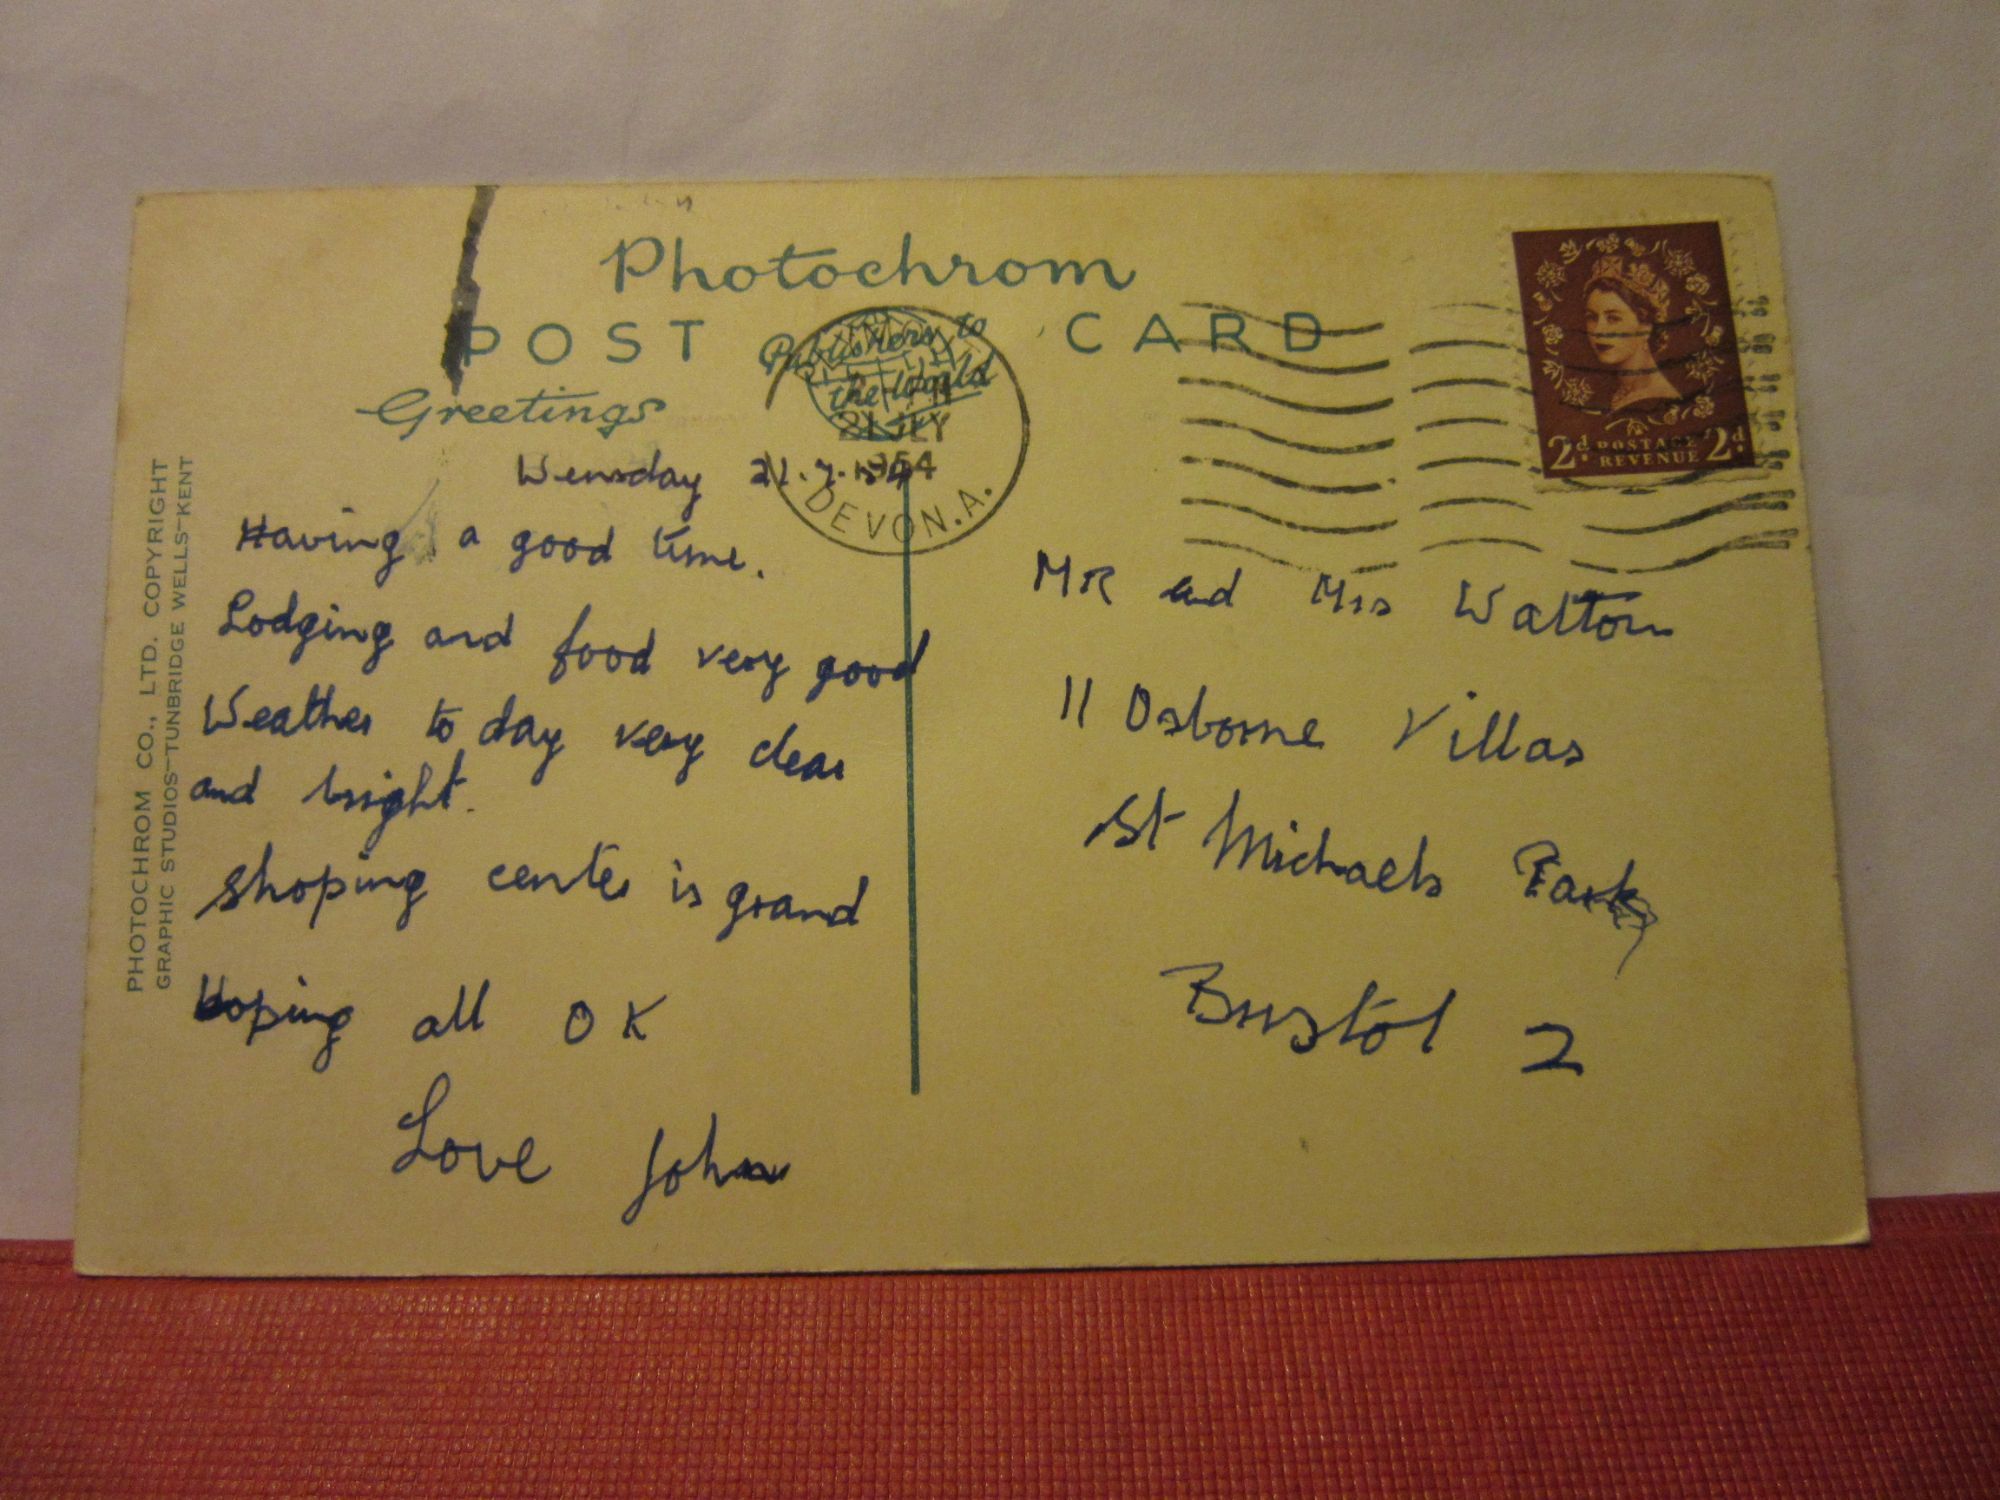 Photochrom
POST CARD
Publishers to
the World
Greetings
21 JLY
1954
DEVON.A.
2d POSTAGE 2d
REVENUE
PHOTOCHROM CO., LTD. COPYRIGHT
GRAPHIC STUDIOS-TUNBRIDGE WELLS-KENT
Wensday 21.7.54
Having a good time.
Lodging and food very good
Weather to day very clear
and bright.
Shoping center is grand
Hoping all OK
Love John
MR and Mrs Walton
11 Osborne Villas
St Michaels Park
Bristol 2